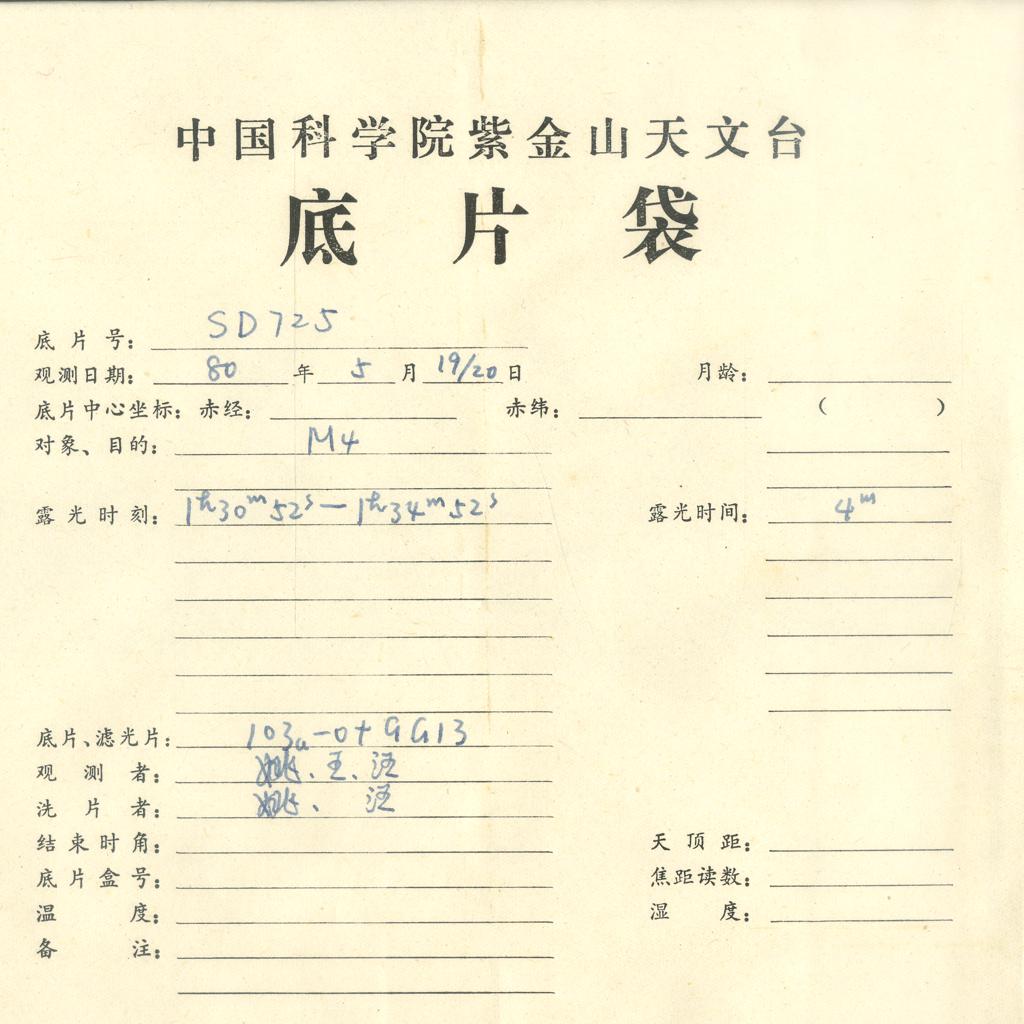 中国科学院紫金山天文台
底片袋
底片号： SD725
观测日期： 80 年 5 月 19/20 日 月龄：
底片中心坐标：赤经： 赤纬： （ ）
对象、目的： M4
露光时刻： 1h30m52s — 1h34m52s 露光时间： 4m
底片、滤光片： 103a-O+GG13
观测者： 姚、王、汪
洗片者： 姚、 汪
结束时角： 天顶距：
底片盒号： 焦距读数：
温度： 湿度：
备注：